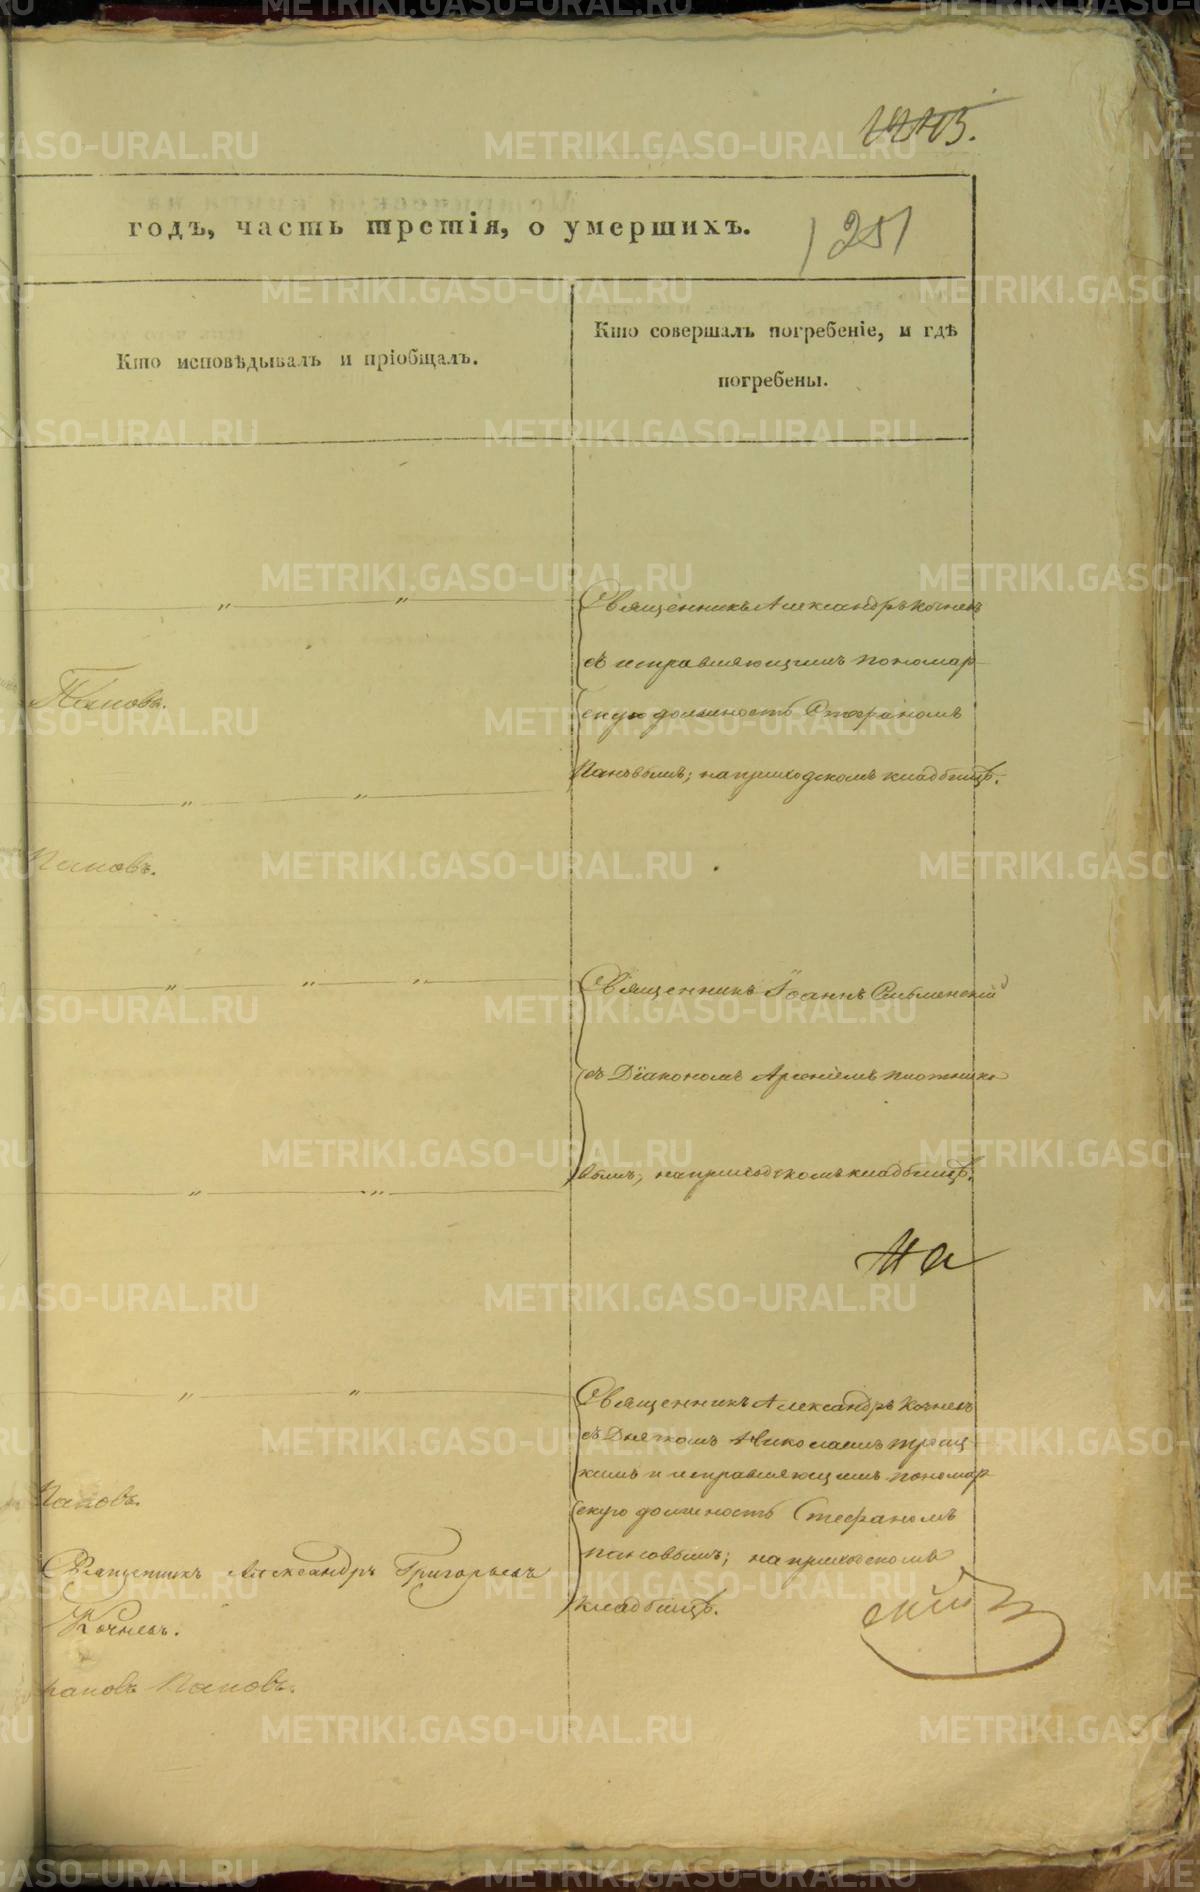 годъ, часть третія, о умершихъ.
1251
Кто исповѣдывалъ и пріобщалъ.
Кто совершалъ погребеніе, и гдѣ
погребены.
Священникъ Александръ Кочневъ
съ исправляющимъ пономар-
скую должность Стефаномъ
Пановымъ; на приходскомъ кладбищѣ.
Пановъ.
Пановъ.
Священникъ Іоаннъ
съ Діакономъ Арсеніемъ Плотнико
вымъ; на приходскомъ кладбищѣ.
Священникъ Александръ Кочневъ
съ Дьячкомъ Николаемъ Троиц-
кимъ и исправляющимъ пономар-
скую должность Стефаномъ
Пановымъ; на приходскомъ
кладбищѣ.
Пановъ.
Священникъ Александръ Григорьевъ
Кочневъ.
Пановъ.
METRIKI.GASO-URAL.RU